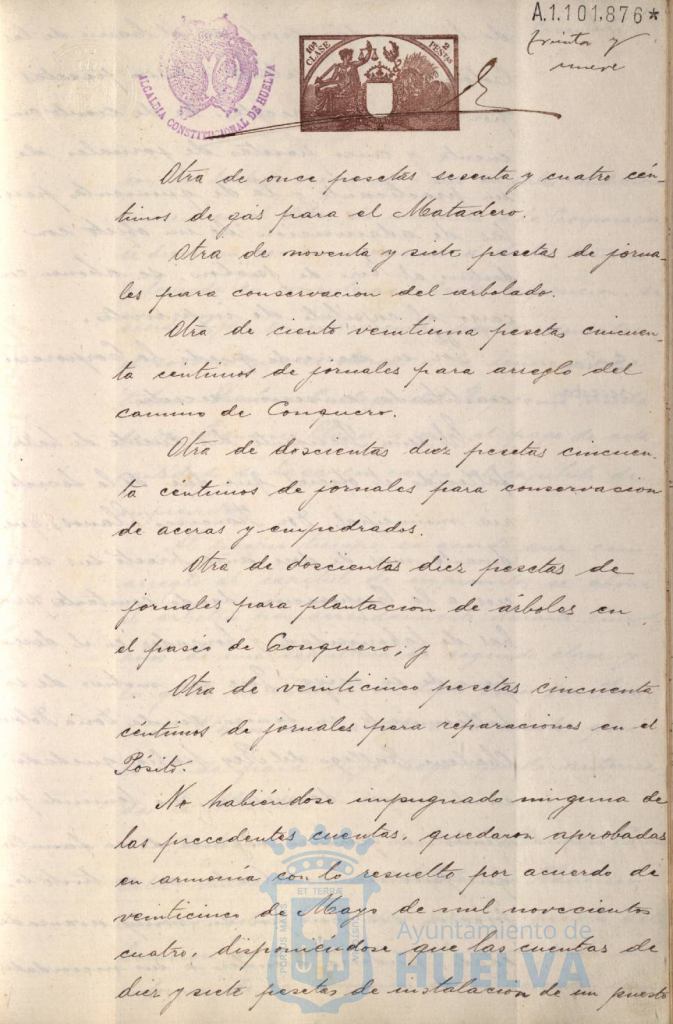 A.1.101.876*
treinta y
nueve
ALCALDIA CONSTITUCIONAL DE HUELVA
10ª CLASE
2 PESETAS
Otra de once pesetas sesenta y cuatro cén-
timos de gas para el Matadero.
Otra de noventa y siete pesetas de jorna-
les para conservacion del arbolado.
Otra de ciento veintiuna pesetas cincuen-
ta centimos de jornales para arreglo del
camino de Conquero.
Otra de doscientas diez pesetas cincuen-
ta céntimos de jornales para conservacion
de aceras y empedrados.
Otra de doscientas diez pesetas de
jornales para plantacion de árboles en
el paseo de Conquero, y
Otra de veinticinco pesetas cincuenta
céntimos de jornales para reparaciones en el
Pósito.
No habiéndose impugnado ninguna de
las precedentes cuentas, quedaron aprobadas
en armonía con lo resuelto por acuerdo de
veinticinco de Mayo de mil novecientos
cuatro, disponiéndose que las cuentas de
diez y siete pesetas de instalacion de un puesto
PORTUS MARIS ET TERRÆ CUSTODIA
Ayuntamiento de
HUELVA